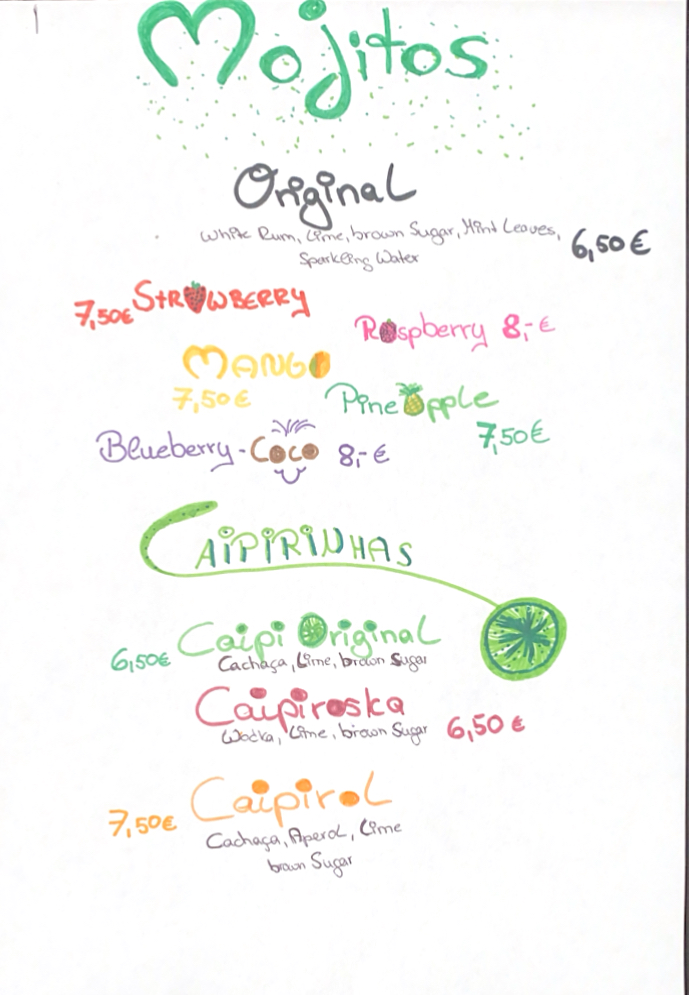 Mojitos
Original
White Rum, Lime, brown Sugar, Mint Leaves,
Sparkling Water
6,50 €
7,50€ STRAWBERRY
Raspberry 8,- €
MANGO
7,50€
PineApple
7,50€
Blueberry - Coco 8,- €
CAIPIRINHAS
Caipi Original
6,50€
Cachaça, Lime, brown Sugar
Caipiroska
Wodka, Lime, brown Sugar 6,50 €
Caipirol
7,50€
Cachaça, Aperol, Lime
brown Sugar